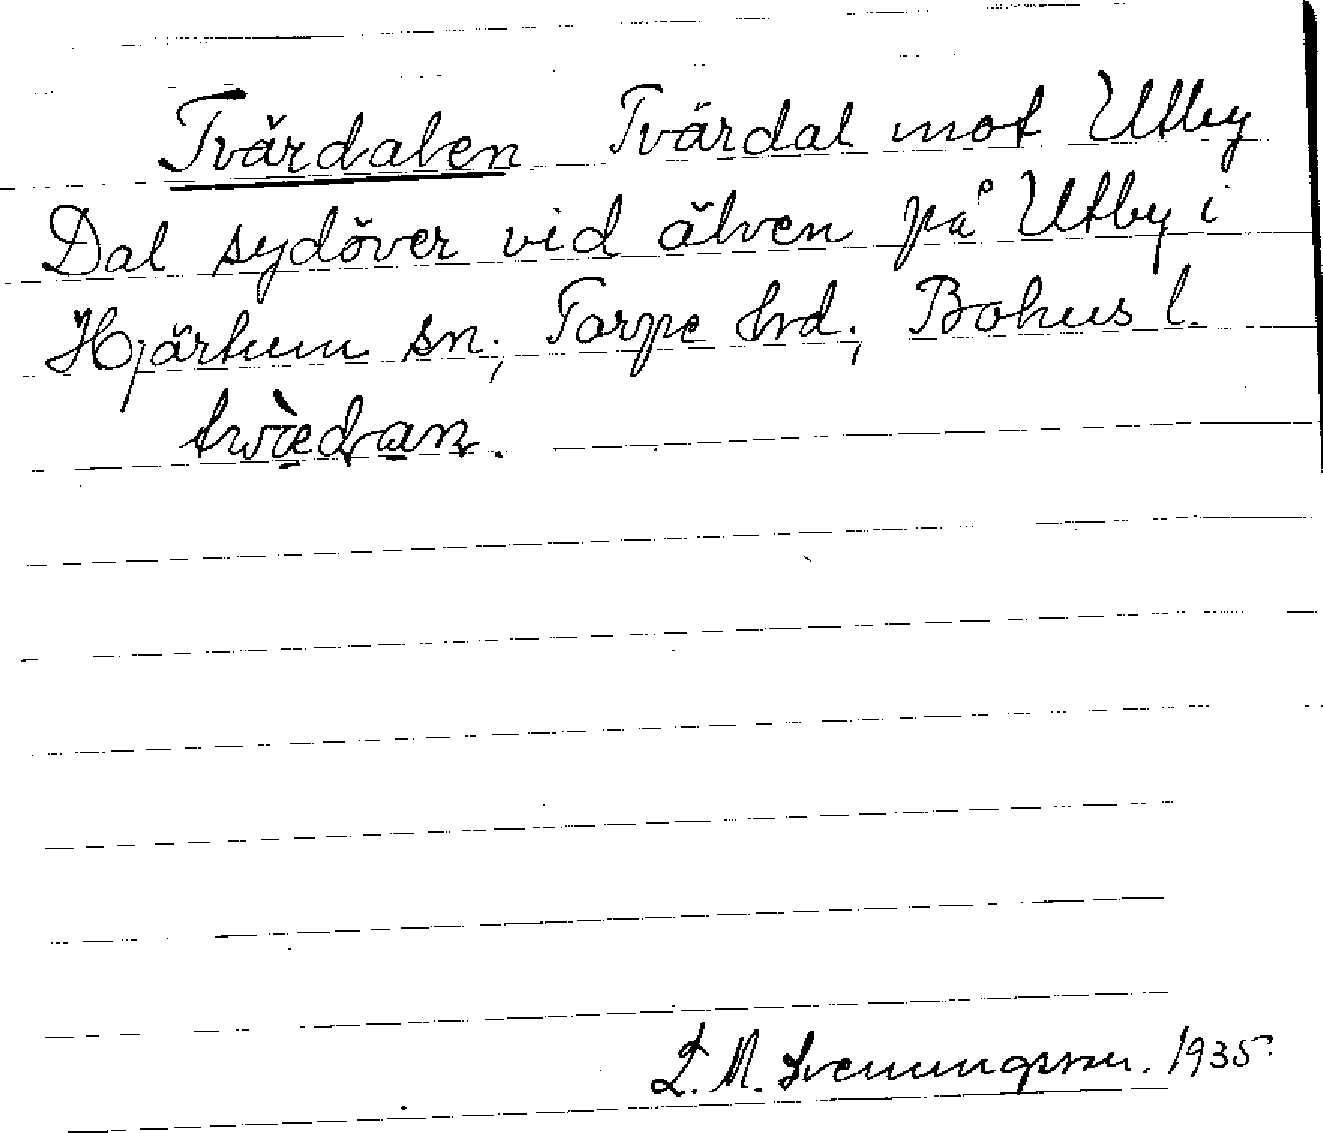 Tvärdalen Tvärdal mot Utby
Dal sydöver vid älven på Utby i
Hjärtum sn; Torpe hrd; Bohus l.
L. M. Svenungsson. 1935.